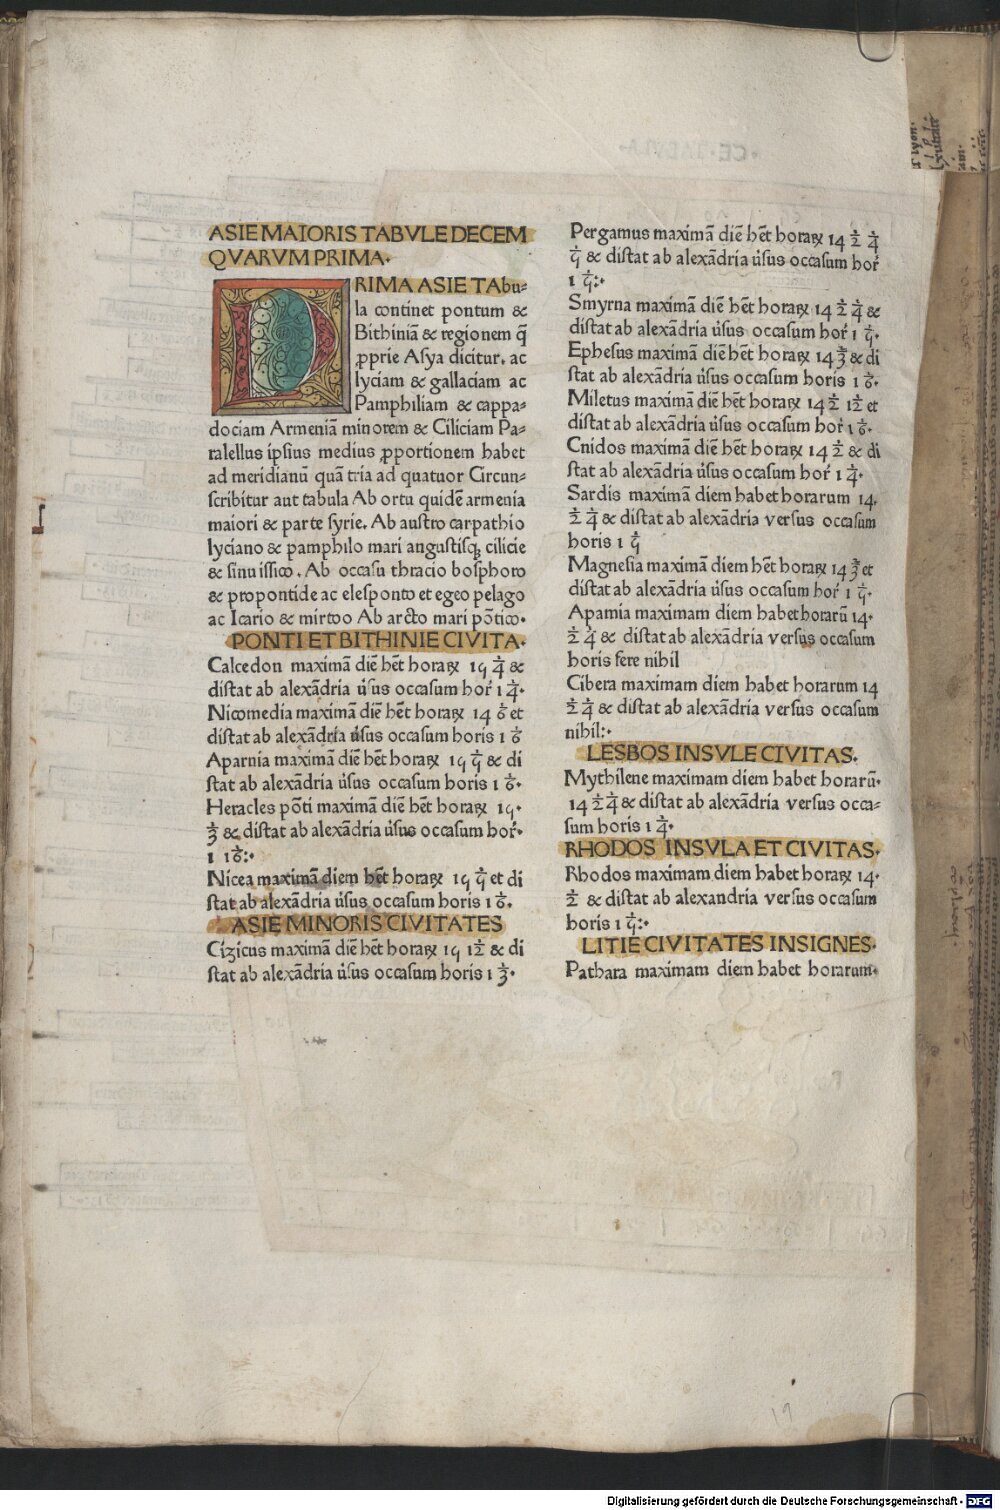 ASIE MAIORIS TABVLE DECEM
QVARVM PRIMA·
PRIMA ASIE TAbu⸗
la continet pontum &
Bithiniã & regionem q̃
ꝓprie Asya dicitur. ac
lyciam & gallaciam ac
Pamphiliam & cappa⸗
dociam Armeniã minorem & Ciliciam Pa⸗
ralellus ipsius medius ꝓportionem habet
ad meridianũ quã tria ad quatuor Circun⸗
scribitur aut tabula Ab ortu quidẽ armenia
maiori & parte syrie. Ab austro carpathio
lyciano & pamphilo mari angustisqꝫ cilicie
& sinu issico. Ab occasu thracio bosphoro
& propontide ac elesponto et egeo pelago
ac Icario & mirtoo Ab arcto mari põtico·
PONTI ET BITHINIE CIVITA·
Calcedon maximã diẽ hẽt horaꝝ 15 1/4 &
distat ab alexãdria úsus occasum hoŕ 1 1/4·
Nicomedia maximã diẽ hẽt horaꝝ 14 1/6 et
distat ab alexãdria úsus occasum horis 1 1/6
Aparnia maximã diẽ hẽt horaꝝ 15 1/5 & di
stat ab alexãdria úsus occasum horis 1 1/6·
Heracles põti maximã diẽ hẽt horaꝝ 15·
1/3 & distat ab alexãdria úsus occasum hoŕ·
1 1/6:·
Nicea maximã diem hẽt horaꝝ 15 1/5 et di
stat ab alexãdria úsus occasum horis 1 1/6·
ASIE MINORIS CIVITATES
Cizicus maximã diẽ hẽt horaꝝ 15 1/12 & di
stat ab alexãdria úsus occasum horis 1 1/3·
Pergamus maximã diẽ hẽt horaꝝ 14 1/2 1/4
1/5 & distat ab alexãdria úsus occasum hoŕ
1 1/5:·
Smyrna maximã diẽ hẽt horaꝝ 14 1/2 1/4 &
distat ab alexãdria úsus occasum hoŕ 1 1/5·
Ephesus maximã diẽ hẽt horaꝝ 14 2/3 & di
stat ab alexãdria úsus occasum horis 1 1/6·
Miletus maximã diẽ hẽt horaꝝ 14 1/2 1/12 et
distat ab alexãdria úsus occasum hoŕ 1 1/6·
Cnidos maximã diẽ hẽt horaꝝ 14 1/2 & di
stat ab alexãdria úsus occasum hoŕ 1 1/4·
Sardis maximã diem habet horarum 14·
1/2 1/4 & distat ab alexãdria versus occasum
horis 1 1/5
Magnesia maximã diem hẽt horaꝝ 14 2/3 et
distat ab alexãdria úsus occasum hoŕ 1 1/5·
Apamia maximam diem habet horarũ 14·
1/2 1/4 & distat ab alexãdria versus occasum
horis fere nihil
Cibera maximam diem habet horarum 14
1/2 1/4 & distat ab alexãdria versus occasum
nihil:·
LESBOS INSVLE CIVITAS·
Mythilene maximam diem habet horarũ·
14 1/2 1/4 & distat ab alexãdria versus occa⸗
sum horis 1 1/4·
RHODOS INSVLA ET CIVITAS·
Rhodos maximam diem habet horaꝝ 14·
1/2 & distat ab alexandria versus occasum
horis 1 1/5:·
LITIE CIVITATES INSIGNES·
Pathara maximam diem habet horarum·
19
Digitalisierung gefördert durch die Deutsche Forschungsgemeinschaft - DFG